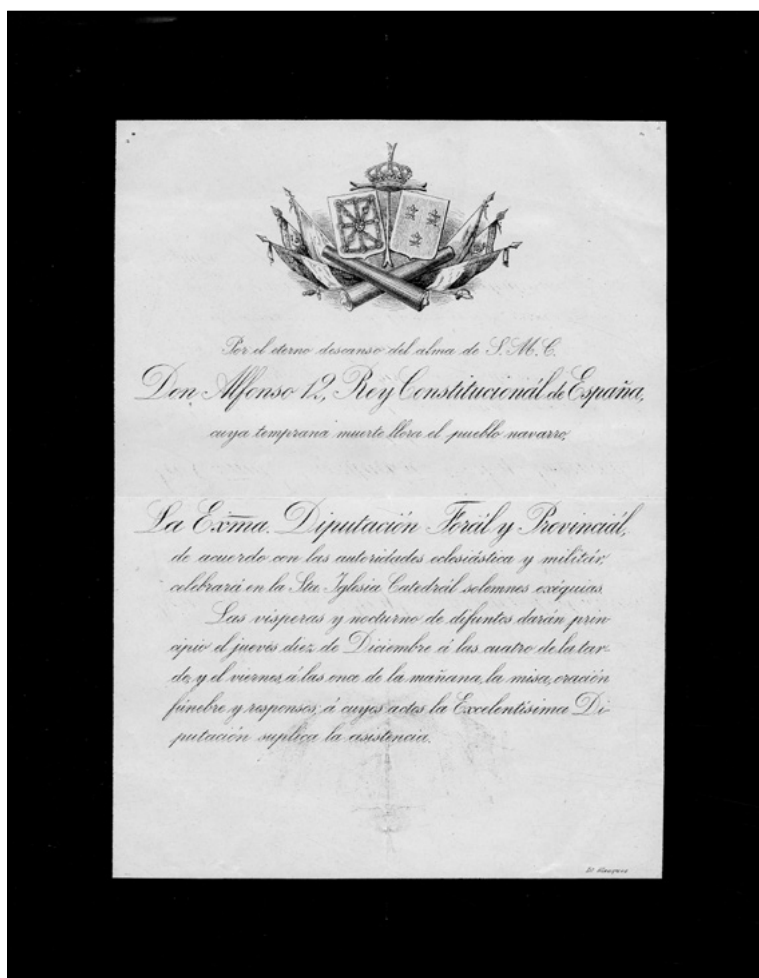 Por el eterno descanso del alma de S. M. C.
Don Alfonso 12, Rey Constitucionál de España,
cuya temprana muerte llora el pueblo navarro,
La Exma. Diputación Forál y Provinciál,
de acuerdo con las autoridades eclesiástica y militár,
celebrará en la Sta. Iglesia Catedrál solemnes exéquias.
Las vísperas y nocturno de difuntos darán prin-
cipio el jueves diez de Diciembre á las cuatro de la tar-
de, y el viernes, á las once de la mañana, la misa, oración
fúnebre y responsos; á cuyos actos la Excelentísima Di-
putación suplica la asistencia.